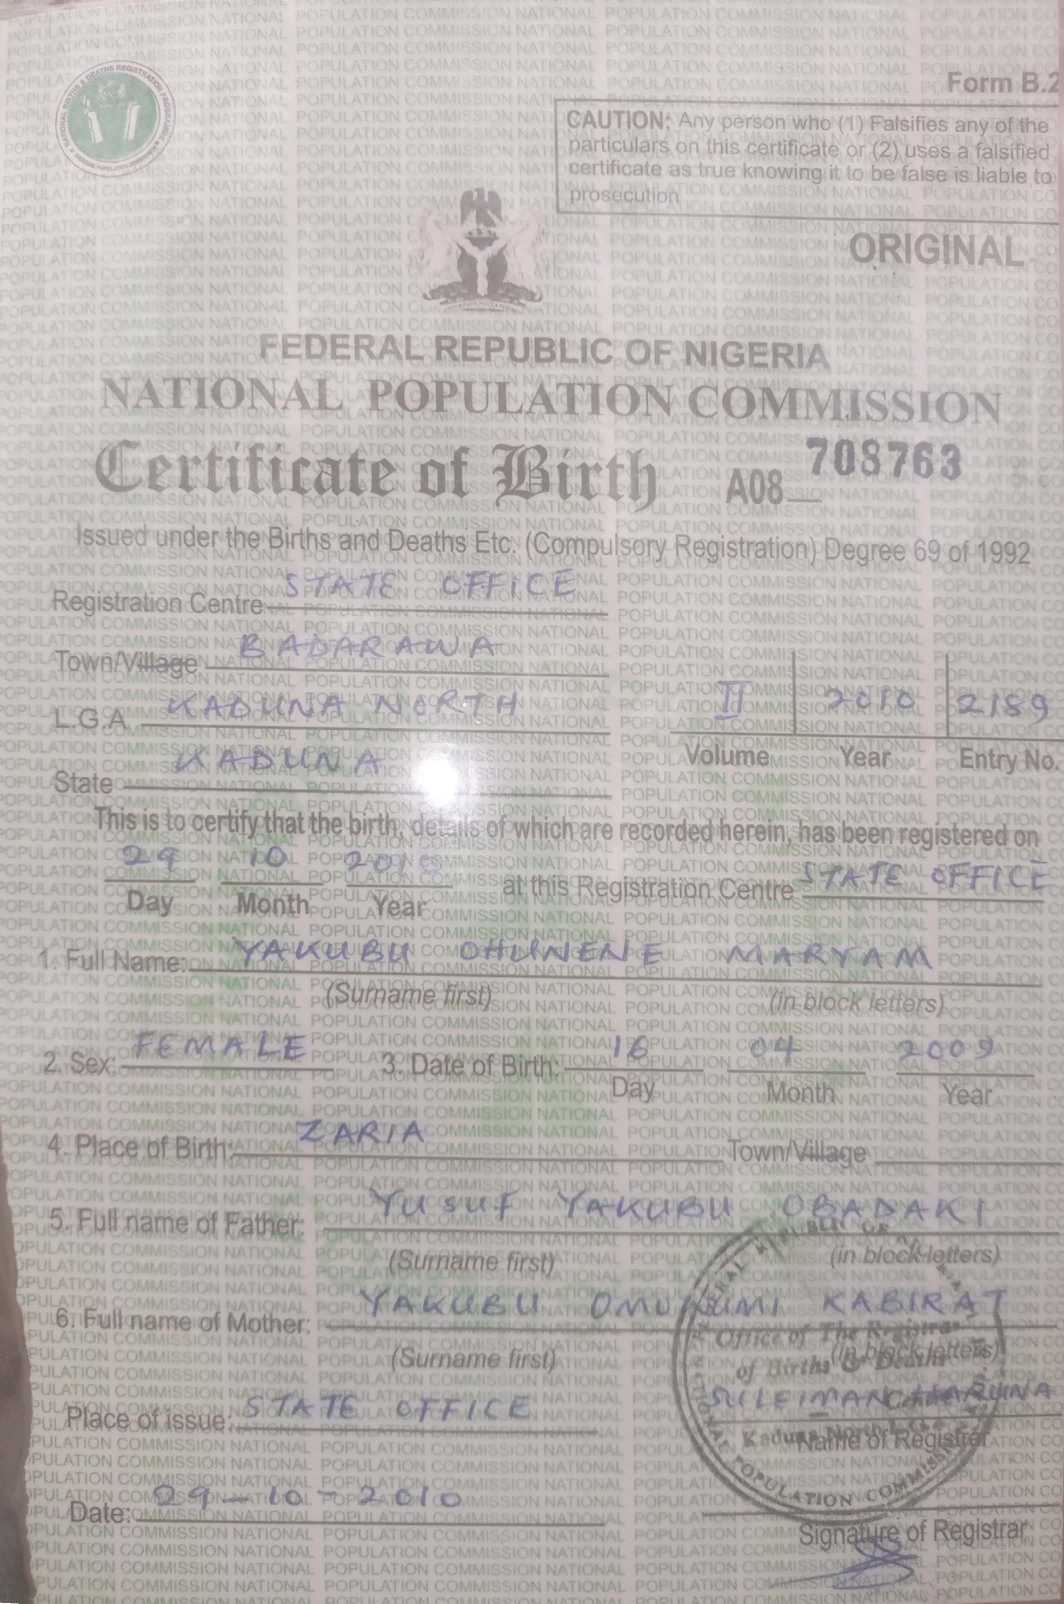 Form B.2
CAUTION: Any person who (1) Falsifies any of the
particulars on this certificate or (2) uses a falsified
certificate as true knowing it to be false is liable to
prosecution
ORIGINAL
FEDERAL REPUBLIC OF NIGERIA
NATIONAL POPULATION COMMISSION
Certificate of Birth A08 708763
Issued under the Births and Deaths Etc. (Compulsory Registration) Degree 69 of 1992
Registration Centre STATE OFFICE
Town/Village BADARAWA
L.G.A. KADUNA NORTH II 2010 2189
Volume Year Entry No.
State KADUNA
This is to certify that the birth, details of which are recorded herein, has been registered on
29 10 2010 at this Registration Centre STATE OFFICE
Day Month Year
1. Full Name: YAKUBU OHUNENE MARYAM
(Surname first) (in block letters)
2. Sex: FEMALE 3. Date of Birth: 16 04 2009
Day Month Year
4. Place of Birth: ZARIA Town/Village
5. Full name of Father: YUSUF YAKUBU OBADAKI
(Surname first) (in block letters)
6. Full name of Mother: YAKUBU KABIRAT
(Surname first) (in block letters)
Office of The Registrar
of Births & Deaths
Place of issue: STATE OFFICE SULEIMAN HARUNA
Name of Registrar
POPULATION COMMISSION
Date: 29-10-2010
Signature of Registrar